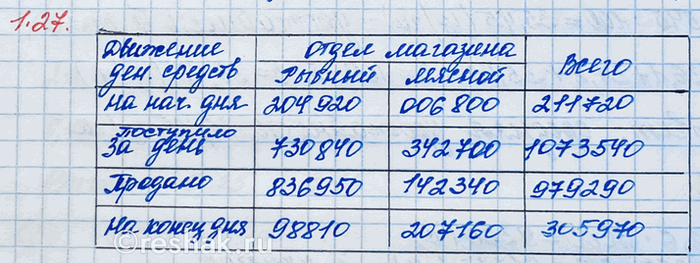 1.27.
Движение отдел магазина Всего
ден. средств Рыбный Мясной
На нач. дня 204920 006800 211720
поступило
за день 730840 342700 1073540
Продано 836950 142340 979290
На конец дня 98810 207160 305970
reshak.ru